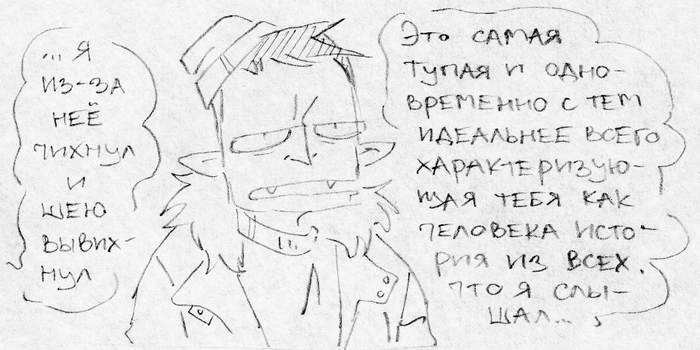 ... Я
ИЗ-ЗА
НЕЁ
ЧИХНУЛ
И
ШЕЮ
ВЫВИХ-
НУЛ
ЭТО САМАЯ
ТУПАЯ И ОДНО-
ВРЕМЕННО С ТЕМ
ИДЕАЛЬНЕЕ ВСЕГО
ХАРАКТЕРИЗУЮ-
ЩАЯ ТЕБЯ КАК
ЧЕЛОВЕКА ИСТО-
РИЯ ИЗ ВСЕХ,
ЧТО Я СЛЫ-
ШАЛ...